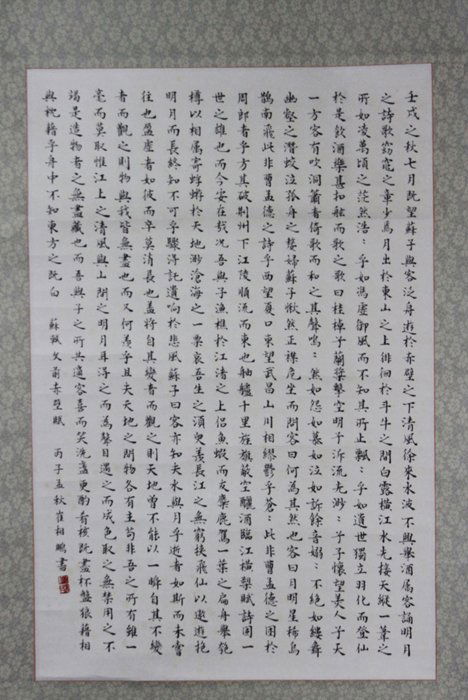 壬戌之秋七月既望蘇子與客泛舟遊於赤壁之下清風徐來水波不興舉酒屬客誦明月
之詩歌窈窕之章少焉月出於東山之上徘徊於斗牛之間白露橫江水光接天縱一葦之
所如凌萬頃之茫然浩〻乎如馮虛御風而不知其所止飄〻乎如遺世獨立羽化而登仙
於是飲酒樂甚扣舷而歌之歌曰桂棹兮蘭槳擊空明兮泝流光渺〻兮予懷望美人兮天
一方客有吹洞簫者倚歌而和之其聲嗚〻然如怨如慕如泣如訴餘音嫋〻不絕如縷舞
幽壑之潛蛟泣孤舟之嫠婦蘇子愀然正襟危坐而問客曰何為其然也客曰月明星稀烏
鵲南飛此非曹孟德之詩乎西望夏口東望武昌山川相繆鬱乎蒼〻此非曹孟德之困於
周郎者乎方其破荊州下江陵順流而東也舳艫千里旌旗蔽空釃酒臨江橫槊賦詩固一
世之雄也而今安在哉況吾與子漁樵於江渚之上侶魚蝦而友麋鹿駕一葉之扁舟舉匏
樽以相屬寄蜉蝣於天地渺滄海之一粟哀吾生之須臾羨長江之無窮挾飛仙以遨遊抱
明月而長終知不可乎驟得託遺響於悲風蘇子曰客亦知夫水與月乎逝者如斯而未嘗
往也盈虛者如彼而卒莫消長也蓋將自其變者而觀之則天地曾不能以一瞬自其不變
者而觀之則物與我皆無盡也而又何羨乎且夫天地之間物各有主苟非吾之所有雖一
毫而莫取惟江上之清風與山間之明月耳得之而為聲目遇之而成色取之無禁用之不
竭是造物者之無盡藏也而吾與子之所共適客喜而笑洗盞更酌肴核既盡杯盤狼藉相
與枕藉乎舟中不知東方之既白 蘇軾文前赤壁賦 丙子孟秋崔相鵬書